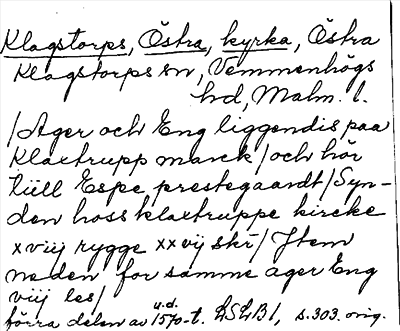 Klagstorps, Östra, kyrka, Östra
Klagstorps sn, Vemmenhögs
hd, Malm. l.
/Ager och Eng liggendis paa
Klaxtrupp marck/och hör
tiill Espe prestegaandt/Syn-
den hoss klaxtruppe kircke
xviij rygge xxvij skr/Jtem
neden for samme ager Eng
viij les/
förra delen av u.d. 1570-t. LSLB1, s. 303. orig.